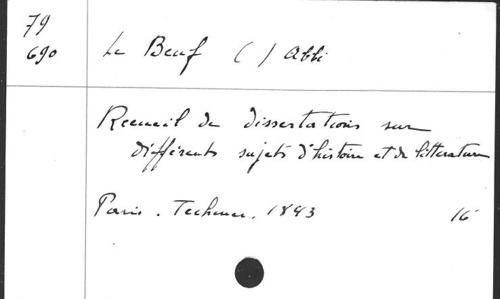 79
690
Le Beuf ( ) Abbé
Recueil de dissertations sur
différents sujets d'histoire et de littérature
Paris. Techener. 1843 16°